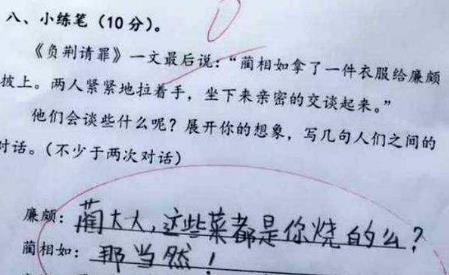 八、小练笔(10分)。
《负荆请罪》一文最后说:“蔺相如拿了一件衣服给廉颇
披上。两人紧紧地拉着手,坐下来亲密的交谈起来。”
他们会谈些什么呢?展开你的想象,写几句人们之间的
对话。(不少于两次对话)
廉颇:蔺大人,这些菜都是你烧的么?
蔺相如:那当然!